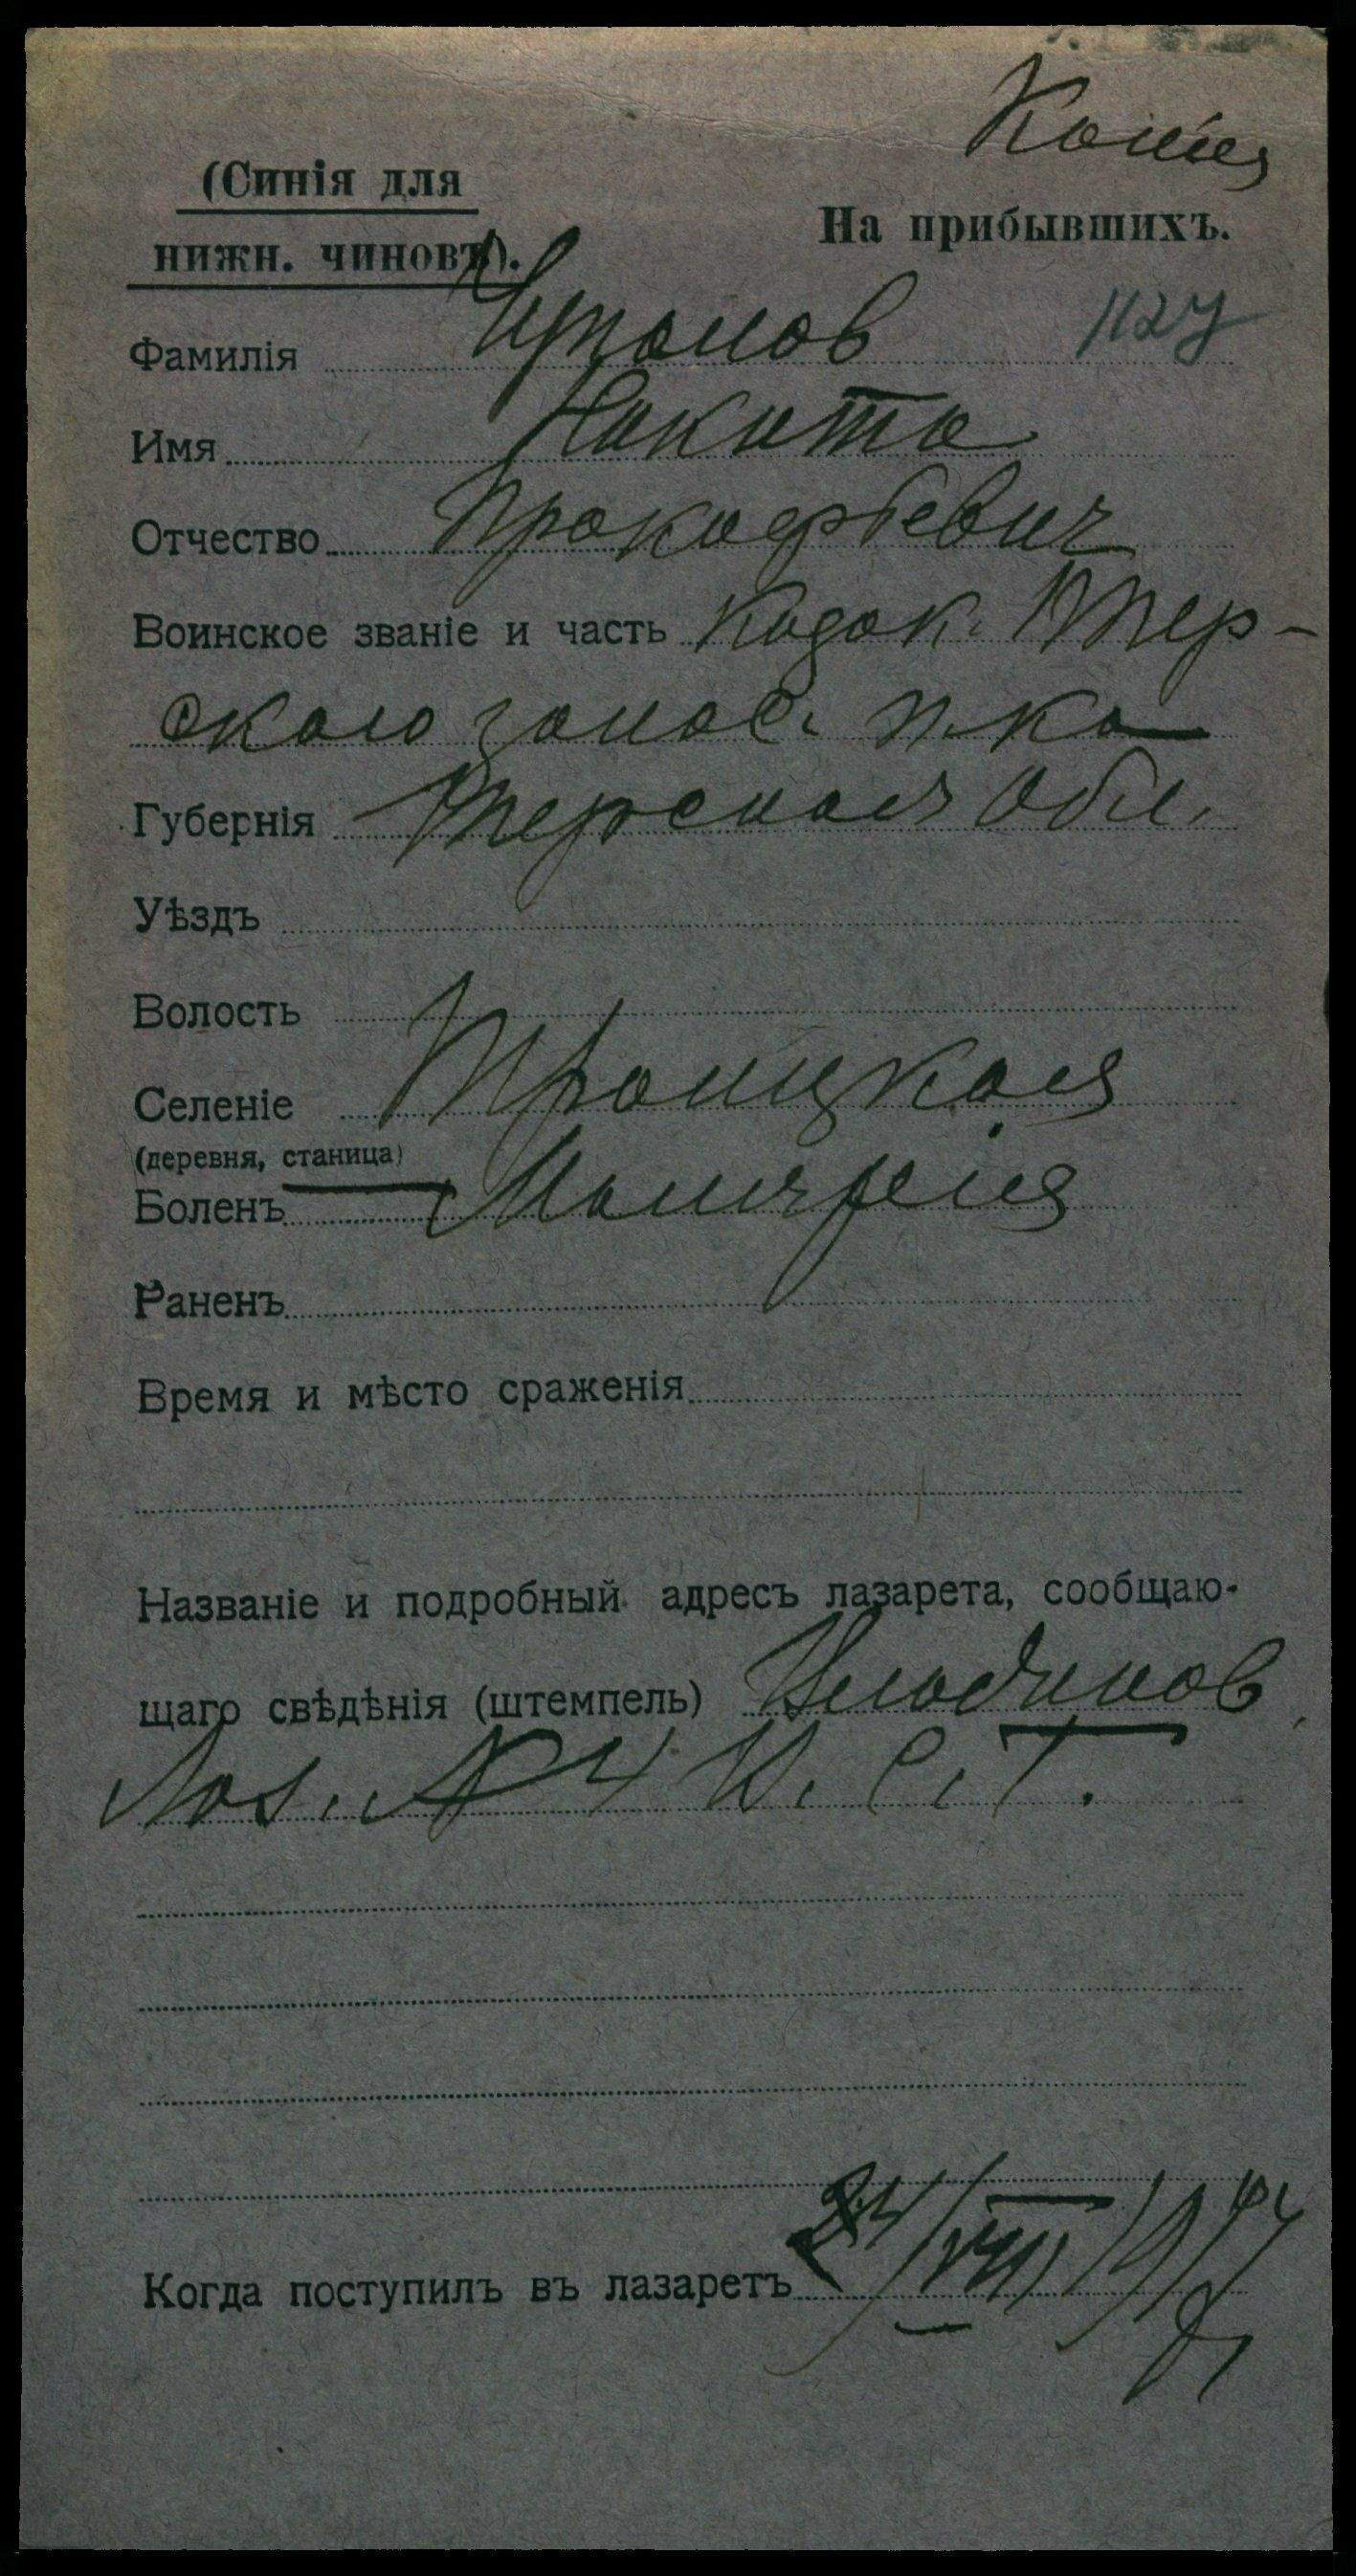 Копия
(Синія для
нижн. чиновъ).
На прибывшихъ.
Фамилія
1127
Имя Никита
Отчество Прокофьевич
Воинское званіе и часть Казак. Тер-
ского запас. п-ка
Губернія Терская Обл.
Уѣздъ
Волость
Селеніе Троицкая
(деревня, станица)
Боленъ Малярия
Раненъ
Время и мѣсто сраженія
Названіе и подробный адресъ лазарета, сообщаю-
щаго свѣдѣнія (штемпель)
Лаз. № 4 В. С. Г.
Когда поступилъ въ лазаретъ